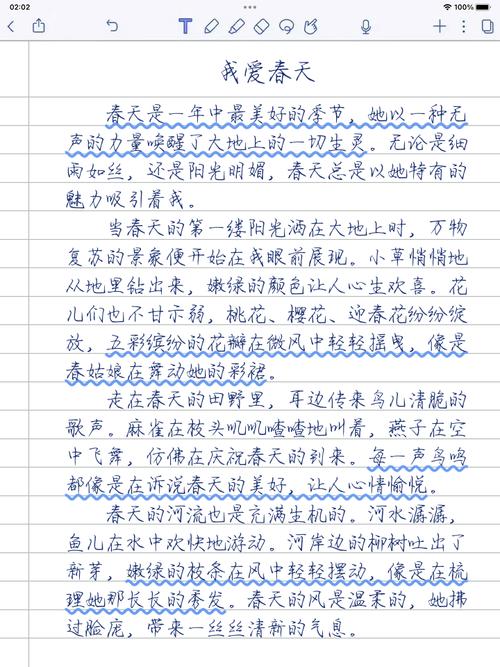 02:02
100%
我爱春天
春天是一年中最美好的季节，她以一种无
声的力量唤醒了大地上的一切生灵。无论是细
雨如丝，还是阳光明媚，春天总是以她特有的
魅力吸引着我。
当春天的第一缕阳光洒在大地上时，万物
复苏的景象便开始在我眼前展现。小草悄悄地
从地里钻出来，嫩绿的颜色让人心生欢喜。花
儿们也不甘示弱，桃花、樱花、迎春花纷纷绽
放，五彩缤纷的花瓣在微风中轻轻摇曳，像是
春姑娘在舞动她的彩裙。
走在春天的田野里，耳边传来鸟儿清脆的
歌声。麻雀在枝头叽叽喳喳地叫着，燕子在空
中飞舞，仿佛在庆祝春天的到来。每一声鸟鸣
都像是在诉说春天的美好，让人心情愉悦。
春天的河流也是充满生机的。河水潺潺，
鱼儿在水中欢快地游动。河岸边的柳树吐出了
新芽，嫩绿的枝条在风中轻轻摆动，像是在梳
理她那长长的秀发。春天的风是温柔的，她拂
过脸庞，带来一丝丝清新的气息。